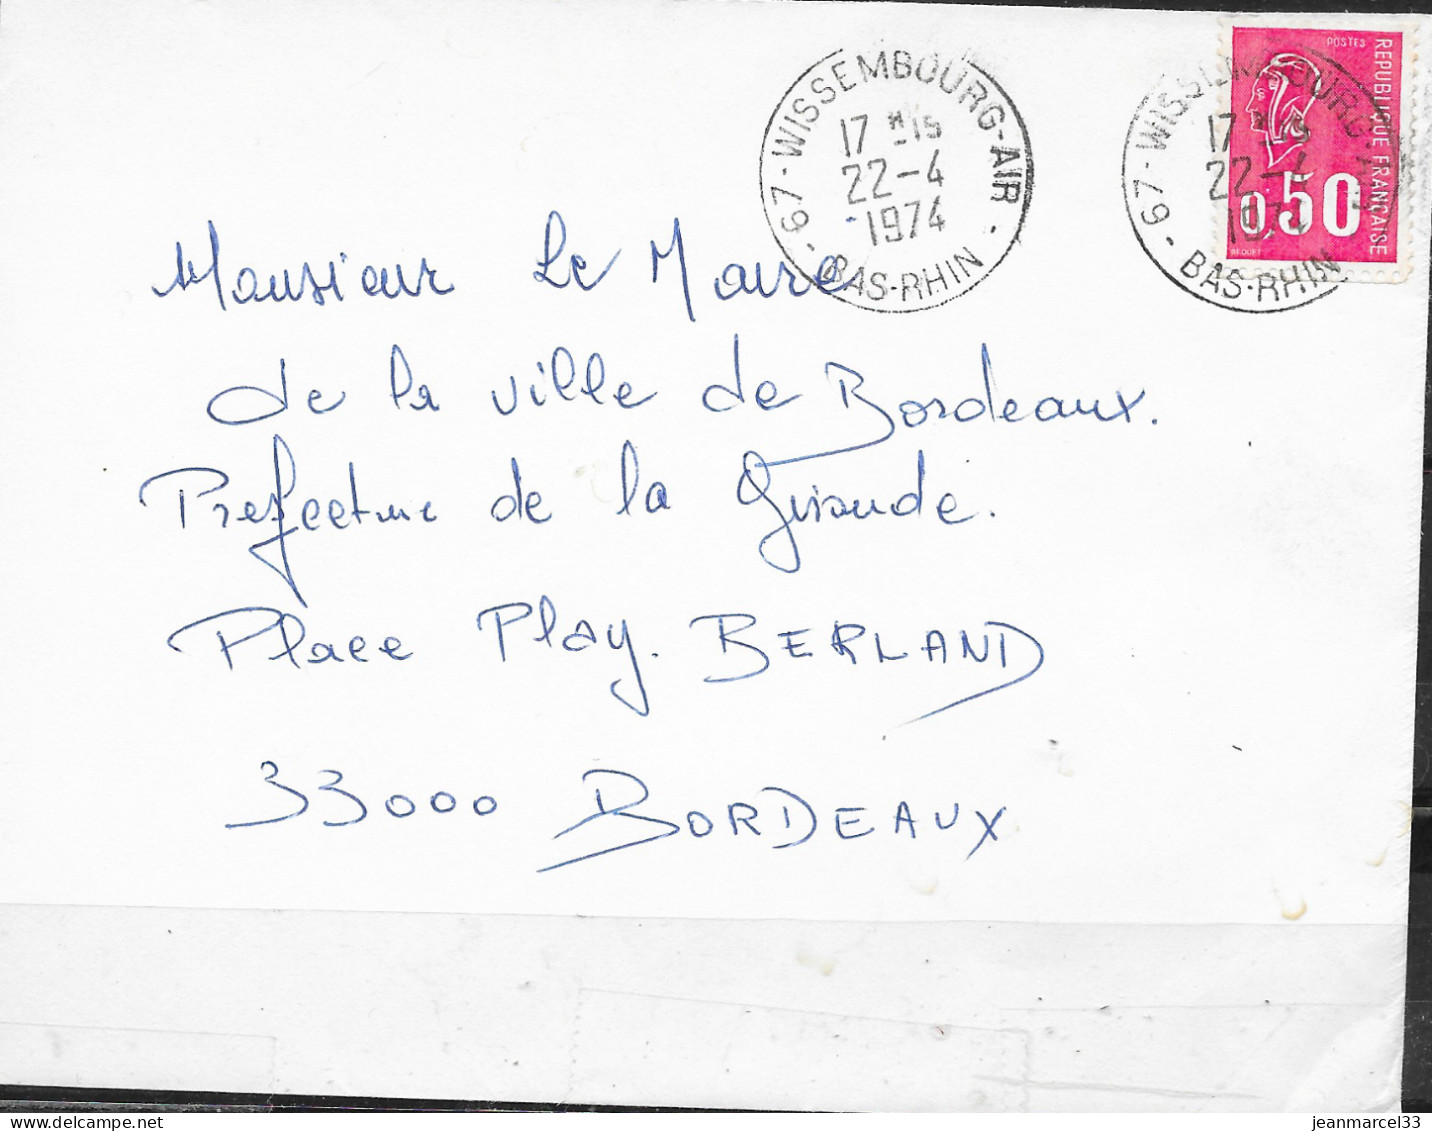 67 - WISSEMBOURG-AIR
17 H 15
22-4
1974
- BAS-RHIN -
67 - WISSEMBOURG-AIR
17 H 15
22-4
1974
- BAS-RHIN
POSTES
REPUBLIQUE FRANÇAISE
0,50
BEQUET
Monsieur Le Maire
de la ville de Bordeaux.
Prefecture de la Gironde.
Place Play. BERLAND
33000 BORDEAUX
jeanmarcel33